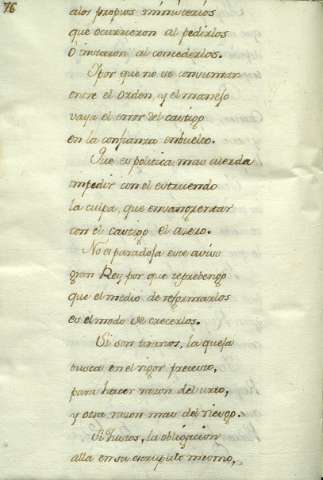 76
alos propios ministerios
que ocurrieron al pedirlos
o incitaron al concederlos.
Y por que no se consuman
entre el orden, y el manejo
vaya el error del castigo
en la confianza embuelto.
Que es politica mas cuerda
impedir con el estruendo
la culpa, que ensangrentar
con el castigo el azero.
No es paradoja este aviso
gran Rey, por que reprehengo
que el medio de reformarlos
es el modo de crecerlos.
Si son tiranos, la quexa
busca en el rigor pretexto,
para hacer razon del
y otra razon mas del riesgo.
Si Justos, la obligacion
alla en su escrupulo mesmo,